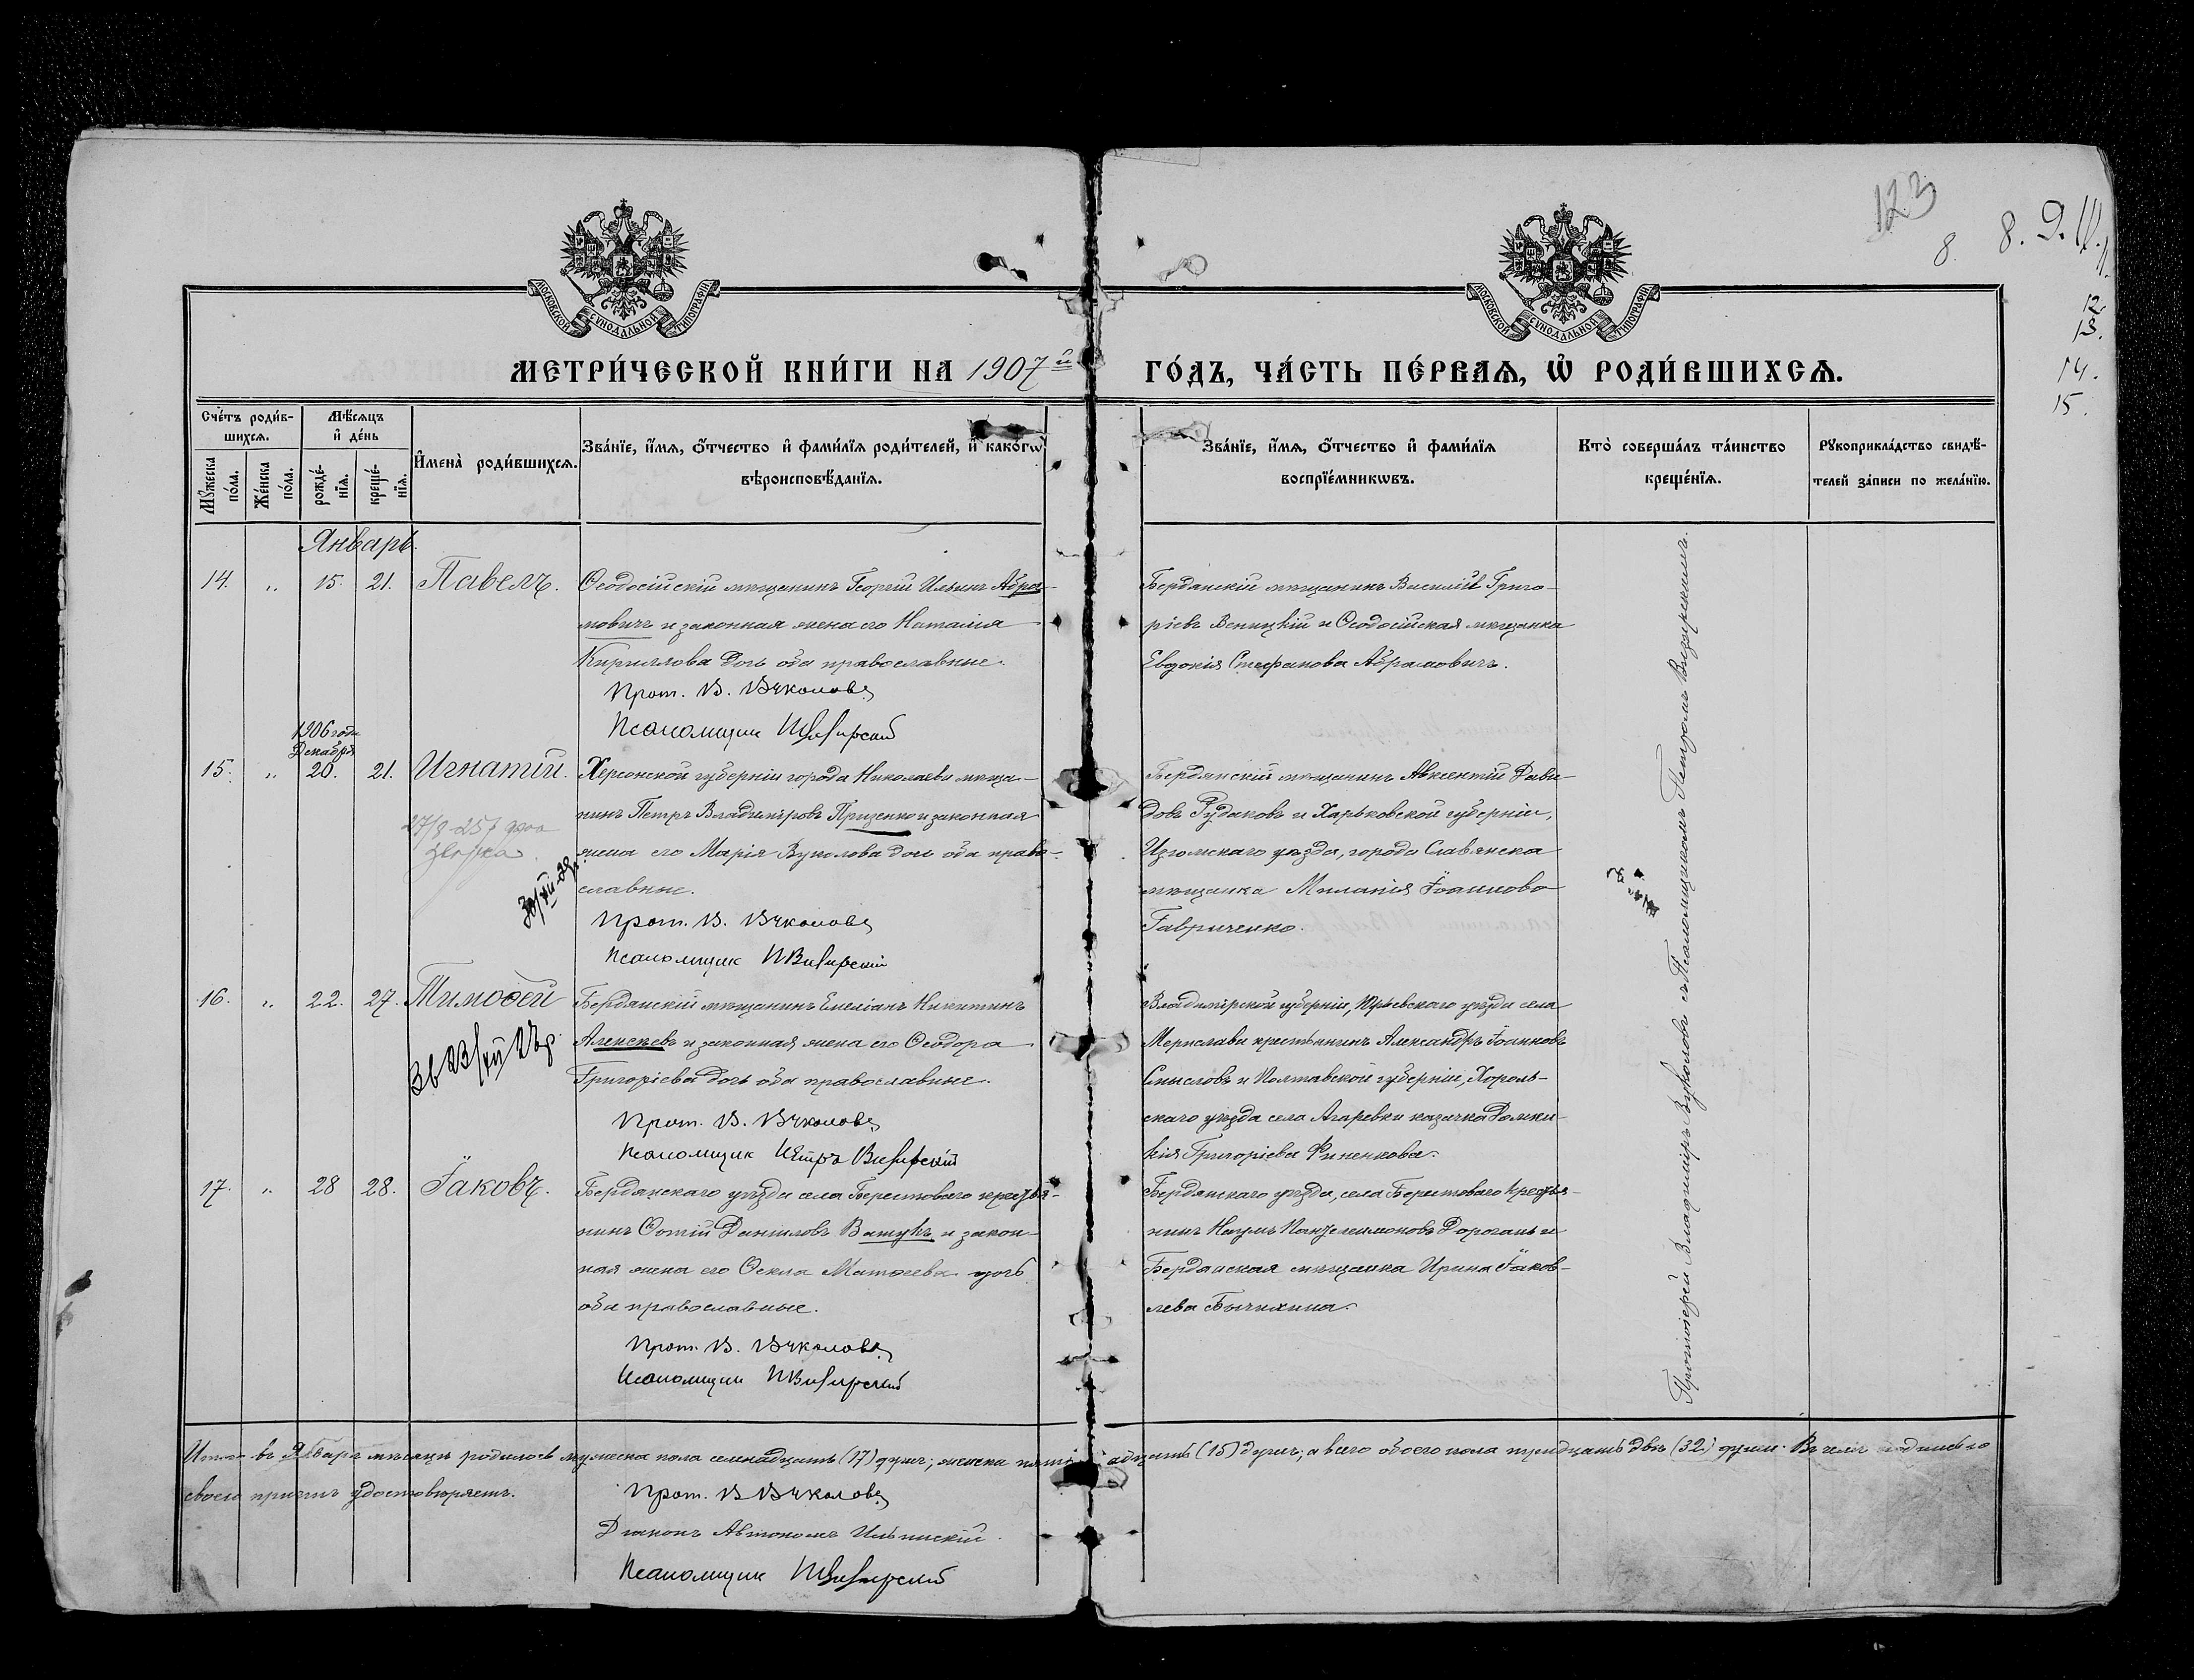 123
8.
8. 9. 11.
12.
13.
14.
15.
МОСКОВСКОЙ СѴНОДАЛЬНОЙ ТИПОГРАФІИ
МОСКОВСКОЙ СѴНОДАЛЬНОЙ ТИПОГРАФІИ
МЕТРИ́ЧЕСКОЙ КНИ́ГИ НА 1907й ГО́ДЪ, ЧА́СТЬ ПЕ́РВАѦ, Ѽ РОДИ́ВШИХСѦ.
Сче́тъ роди́в-
шихсѧ.
Мꙋ́жеска
по́ла.
Же́нска
по́ла.
Мѣ́сѧцъ
и҆ де́нь
рожде́-
нїѧ.
креще́-
нїѧ.
И҆мена̀ роди́вшихсѧ.
Зва́нїе, и҆́мѧ, ѻ҆́тчество и҆ фами́лїѧ роди́телей, и҆ како́гѡ
вѣроисповѣ́данїѧ.
Зва́нїе, и҆́мѧ, ѻ҆́тчество и҆ фами́лїѧ
воспрїе́мникѡвъ.
Кто̀ соверша́лъ та́инство
креще́нїѧ.
Рꙋкоприкла́дство свидѣ́-
телей за́писи по жела́нїю.
Январь.
14. „ 15. 21. Павелъ.
Ѳеодосійскій мѣщанинъ Георгій Ильинъ Абра-
мовичъ и законная жена его Наталія
Кириллова дочь оба православные.
Прот. В. Вуколовъ
Псаломщик
Бердянскій мѣщанинъ Василій Григо-
рьевъ Веницкій и Ѳеодосійская мѣщанка
Евдокія Стефанова Абрамовичъ.
1906 года
Декабря
15. „ 20. 21. Игнатій.
Херсонской губерніи города Николаева мѣща-
нинъ Петръ Владиміровъ Приценко и законная
жена его Марія Вуколова дочь оба право-
славные.
Прот. В. Вуколовъ
Псаломщик
Бердянскій мѣщанинъ Авксентій Дави-
довъ Рудаковъ и Харьковской губерніи,
Изюмскаго уѣзда, города Славянска
мѣщанка Меланія Іоаннова
Гавриченко.
16. „ 22. 27. Тимоѳей
Бердянскій мѣщанинъ Емеліанъ Никитинъ
Алексѣевъ и законная жена его Ѳеодора
Григоріева дочь оба православные.
Прот. В. Вуколовъ
Псаломщик Петръ
Владимірской губерніи, Юрьевскаго уѣзда села
крестьянинъ Александръ Іоанновъ
Смысловъ и Полтавской губерніи, Хороль-
скаго уѣзда села Агаревки казачка Домни-
кія Григоріева Финенкова.
17. „ 28 28. Іаковъ.
Бердянскаго уѣзда села Берестоваго крестья-
нинъ Фотій Даниловъ Вашукъ и закон-
ная жена его Ѳекла Матѳеева дочь
оба православные.
Прот. В. Вуколовъ
Псаломщик
Бердянскаго уѣзда, села Берестоваго крестья-
нинъ Наумъ Пантелеимоновъ Дорогань и
Бердянская мѣщанка Ирина Іаков-
лева Бычихина.
Протоіерей Владиміръ Вуколовъ съ Псаломщикомъ Петромъ
Итого въ Январѣ мѣсяцѣ родилось мужеска пола семнадцать (17) душъ; женска пятнадцать (15) душъ; а всего обоего пола тридцать двѣ (32) души. Въ чемъ подписью
своею причтъ удостовѣряетъ.
Прот. В Вуколовъ
Діаконъ Автономъ Ильинскій.
Псаломщик